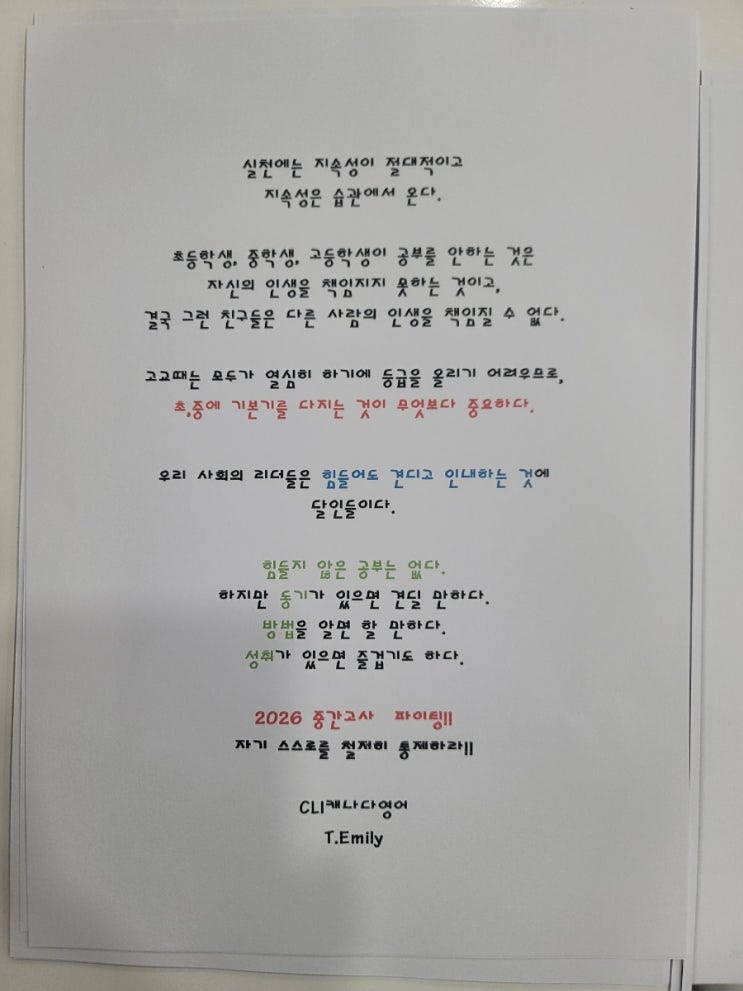 실천에는 지속성이 절대적이고
지속성은 습관에서 온다.
초등학생, 중학생, 고등학생이 공부를 안하는 것은
자신의 인생을 책임지지 못하는 것이고,
결국 그런 친구들은 다른 사람의 인생을 책임질 수 없다.
고교때는 모두가 열심히 하기에 등급을 올리기 어려우므로,
초,중에 기본기를 다지는 것이 무엇보다 중요하다.
우리 사회의 리더들은 힘들어도 견디고 인내하는 것에
달인들이다.
힘들지 않은 공부는 없다.
하지만 동기가 있으면 견딜 만하다.
방법을 알면 할 만하다.
성취가 있으면 즐겁기도 하다.
2026 중간고사 파이팅!!
자기 스스로를 철저히 통제하라!!
CLI캐나다영어
T.Emily